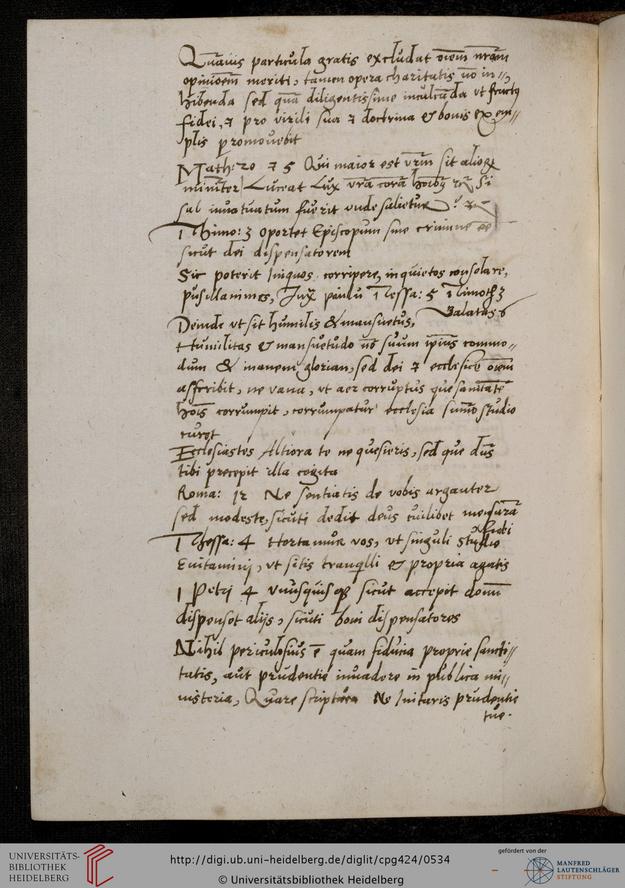 Quãuis particula gratis excludat oĩem nrãm
opinionẽ meriti, tamen opera charitatis nõ in=,
hibenda sed quã diligentissime inculcãda vt fructꝫ
fidei, ⁊ pro virili sua ⁊ doctrina & bonis exem=
plis promouebit
Math: 20 ⁊ 5 Qui maior est vrm̃ sit alioꝝ
minister, Luceat Lux vrã corã hoĩbꝫ Si
sal infatuatum fuerit unde salietur
1 Thimo: 3 oportet Episcopum sine crimine ẽe
sicut dei dispensatorem
Sic poterit corripere, inquietos consolare,
pusillanimes, Jux paulũ Tessa: 5 1 Timoth 3
Galatas 6
Deinde vt sit humilis & mansuetus,
Humilitas & mansuetudo nõ suum ipsius commo=
dum & inanem gloriam, sed dei ⁊ ecclesie oĩem
asscribit, ne vana, vt aer corruptus que sanitatẽ
hoĩs corrumpit, corrumpatur ecclesia sum̃o studio
curet
Ecclesiastes Altiora te ne quesieris, sed que dñs
tibi precepit illa cogita
Roma: 12 Ne sentiatis de vobis arganter
sed modeste, sicuti dedit deus cuilibet mesurã
fidei
1 Thessa: 4 Hortamur vos, vt singuli studio
Enitamini, vt sitis tranq̃lli & propria agatis
1 Petri 4 vnusquisqꝫ sicut accepit donũ
dispenset alijs, sicuti boni dispensatores
Nihil periculosius ẽ quam fiducia proprie sancti=
tatis, aut prudentie inuadere in publica mi=
nisteria, Quare scriptura Ne Initaris prudentie
tue.
UNIVERSITÄTS-
BIBLIOTHEK
HEIDELBERG
http://digi.ub.uni-heidelberg.de/diglit/cpg424/0534
© Universitätsbibliothek Heidelberg
gefördert von der
MANFRED
LAUTENSCHLÄGER
STIFTUNG